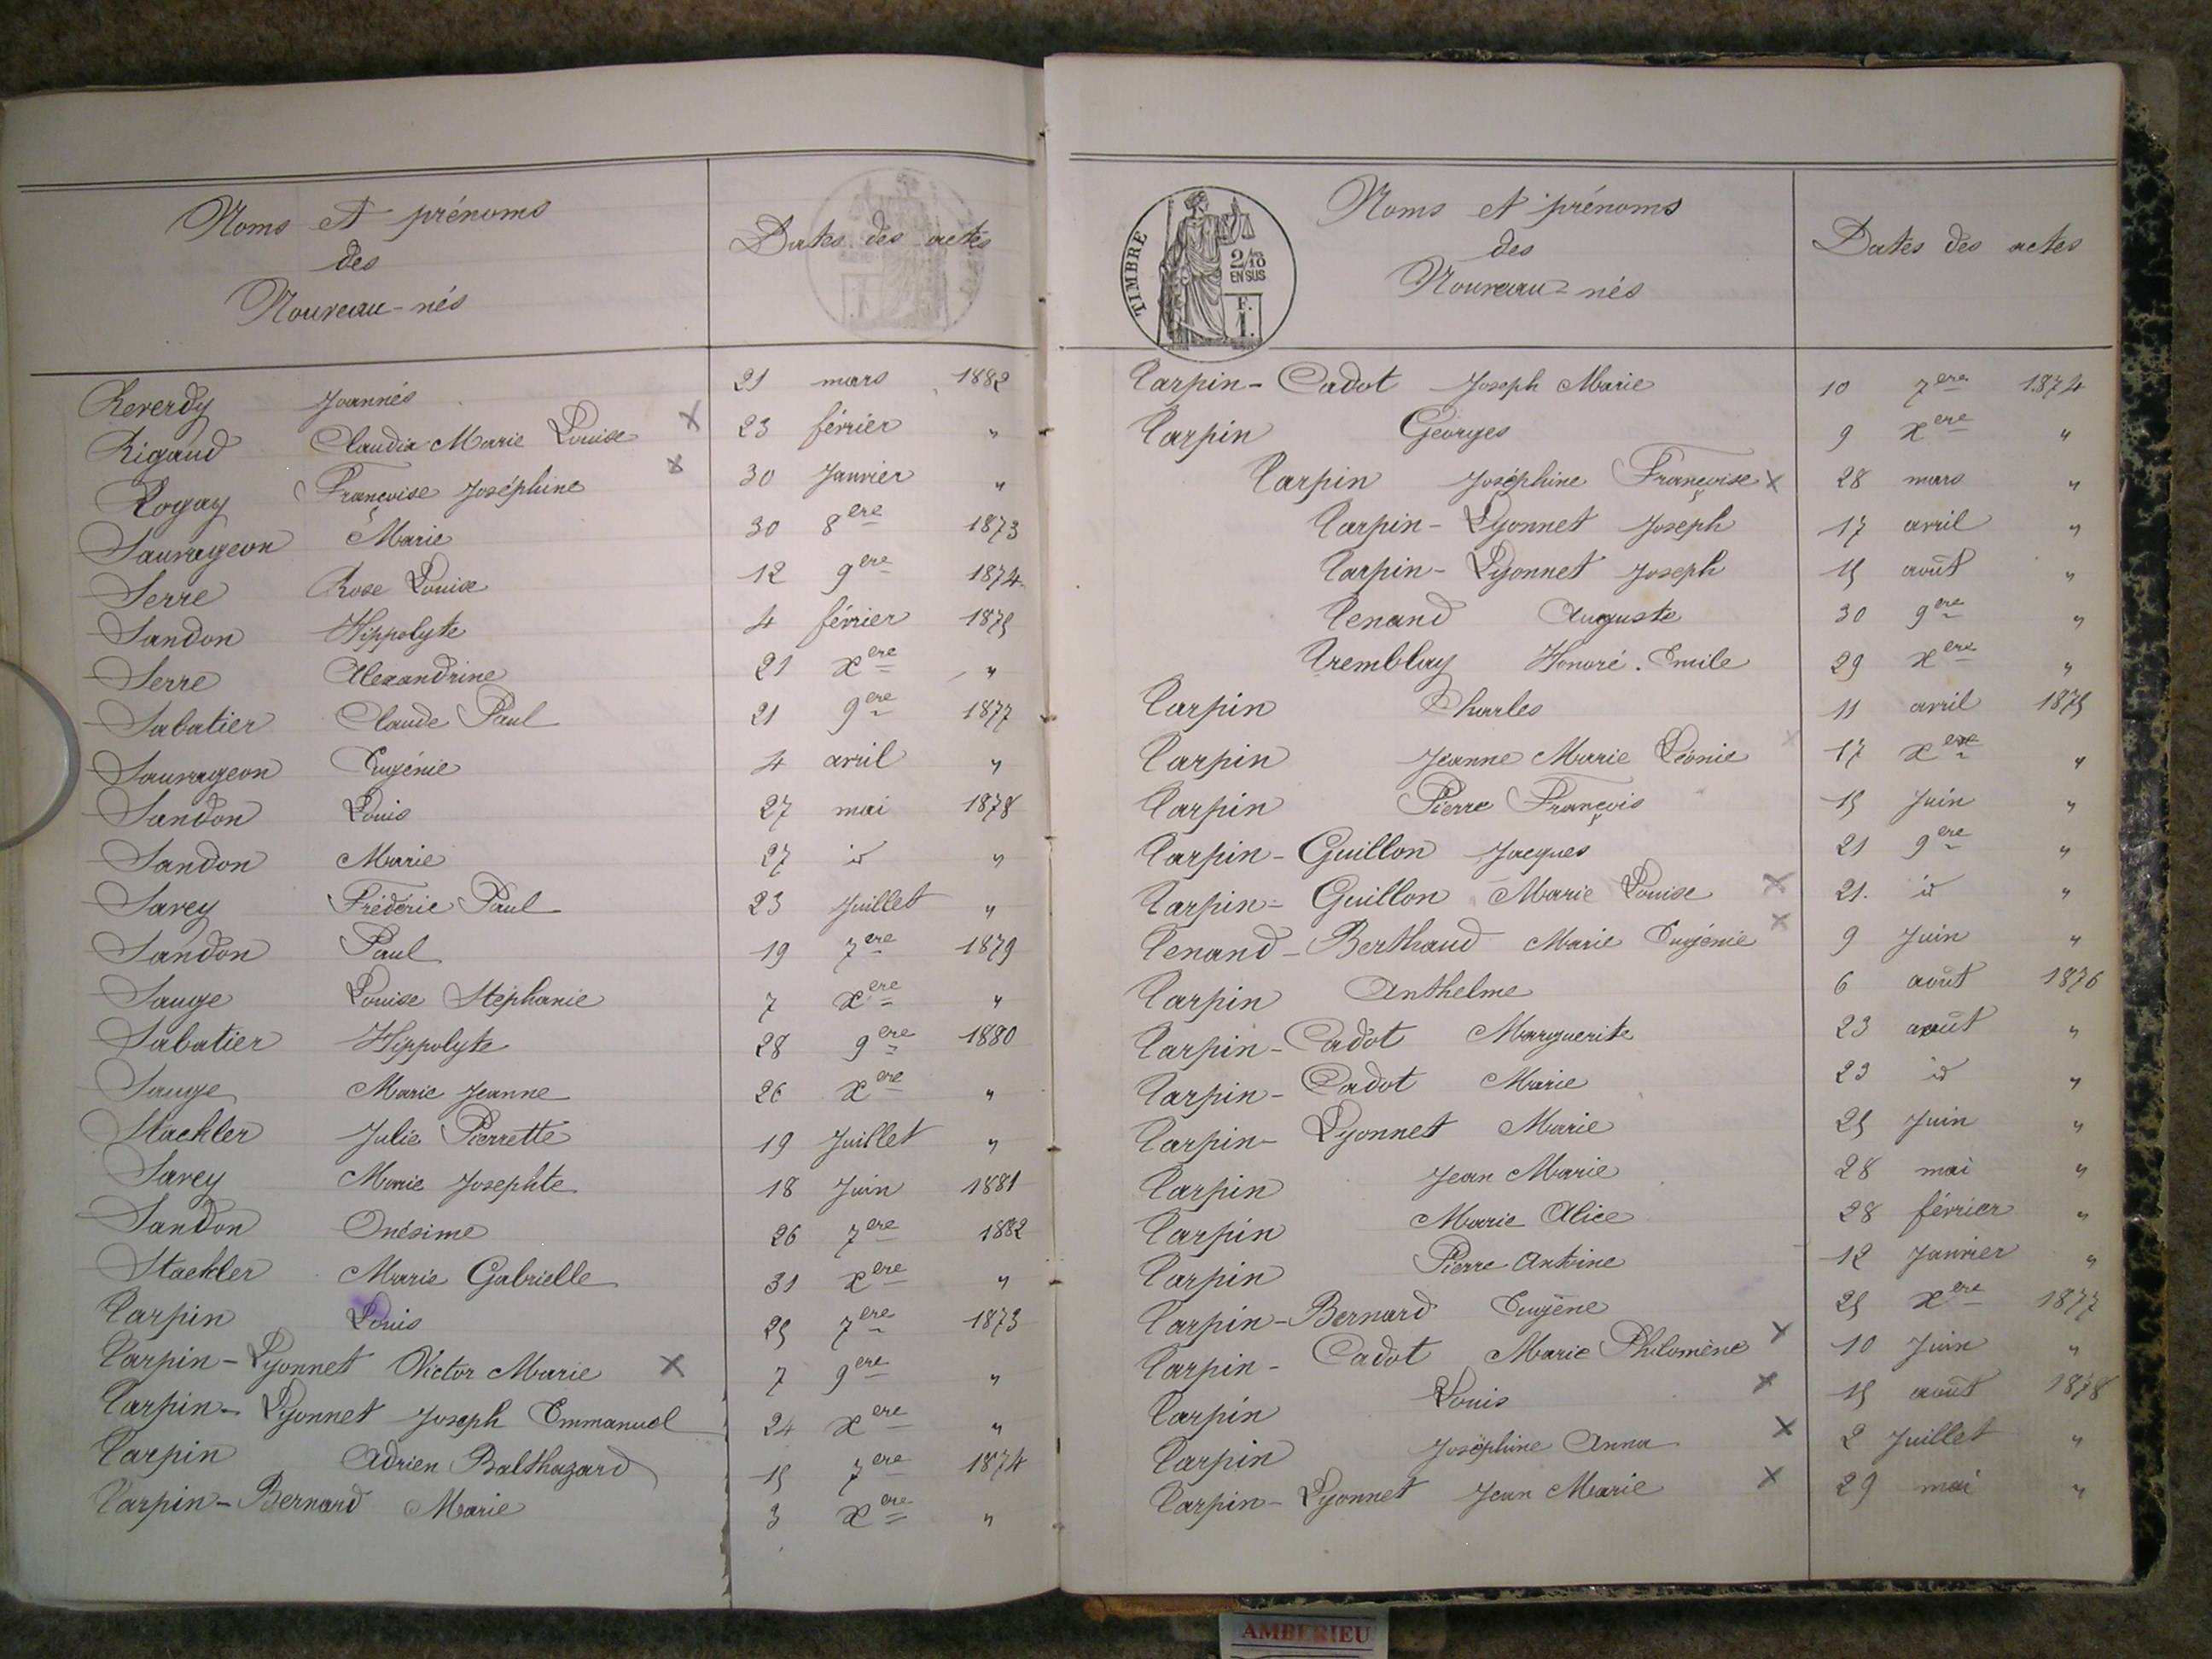 Noms et prénoms
des
Nouveau-nés
Dates des actes
Reverdy Joannés 21 mars 1882
Rigaud Claudia Marie Louise x 23 février "
Rogay Françoise Joséphine x 30 Janvier "
Sauvageon Marie 30 8ere 1873
Serre Rose Louise 12 9ere 1874
Sandon Hippolyte 4 février 1875
Serre Alexandrine 21 xere "
Sabatier Claude Paul 21 9ere 1877
Sauvageon Eugénie 4 avril "
Sandon Louis 27 mai 1878
Sandon Marie 27 id "
Savey Fréderic Paul 23 Juillet "
Sandon Paul 19 7ere 1879
Sauge Louise Stéphanie 7 xere "
Sabatier Hippolyte 28 9ere 1880
Sauge Marie Jeanne 26 xere "
Stackler Julie Pierrette 19 Juillet "
Savey Marie Josephte 18 Juin 1881
Sandon Onésime 26 7ere 1882
Stackler Marie Gabrielle 31 xere "
Tarpin Louis 25 7ere 1873
Tarpin-Lyonnet Victor Marie x 7 9ere "
Tarpin-Lyonnet Joseph Emmanuel 24 xere "
Tarpin Adrien Balthazard 15 7ere 1874
Tarpin-Bernard Marie 3 xere "
TIMBRE
2/10
EN SUS
F.
1.
Noms et prénoms
des
Nouveau-nés
Dates des actes
Tarpin-Cadot Joseph Marie 10 7ere 1874
Tarpin Georges 9 xere "
Tarpin Joséphine Françoise x 28 mars "
Tarpin-Lyonnet Joseph 17 avril "
Tarpin-Lyonnet Joseph 15 août "
Tenand Auguste 30 9ere "
Tremblay Honoré. Emile 29 xere "
Tarpin Charles 11 avril 1875
Tarpin Jeanne Marie Léonie x 17 xere "
Tarpin Pierre François 15 Juin "
Tarpin-Guillon Jacques 21 9ere "
Tarpin-Guillon Marie Louise x 21. id "
Tenand-Berthaud Marie Eugénie x 9 Juin "
Tarpin Anthelme 6 août 1876
Tarpin-Cadot Marguerite 23 août "
Tarpin-Cadot Marie 23 id "
Tarpin-Lyonnet Marie 25 Juin "
Tarpin Jean Marie 28 mai "
Tarpin Marie Alice 28 février "
Tarpin Pierre Antoine 12 Janvier "
Tarpin-Bernard Eugène 25 xere 1877
Tarpin-Cadot Marie Philomène x 10 Juin "
Tarpin Louis x 15 août 1878
Tarpin Joséphine Anna x 2 Juillet "
Tarpin-Lyonnet Jean Marie x 29 mai "
AMBERIEU